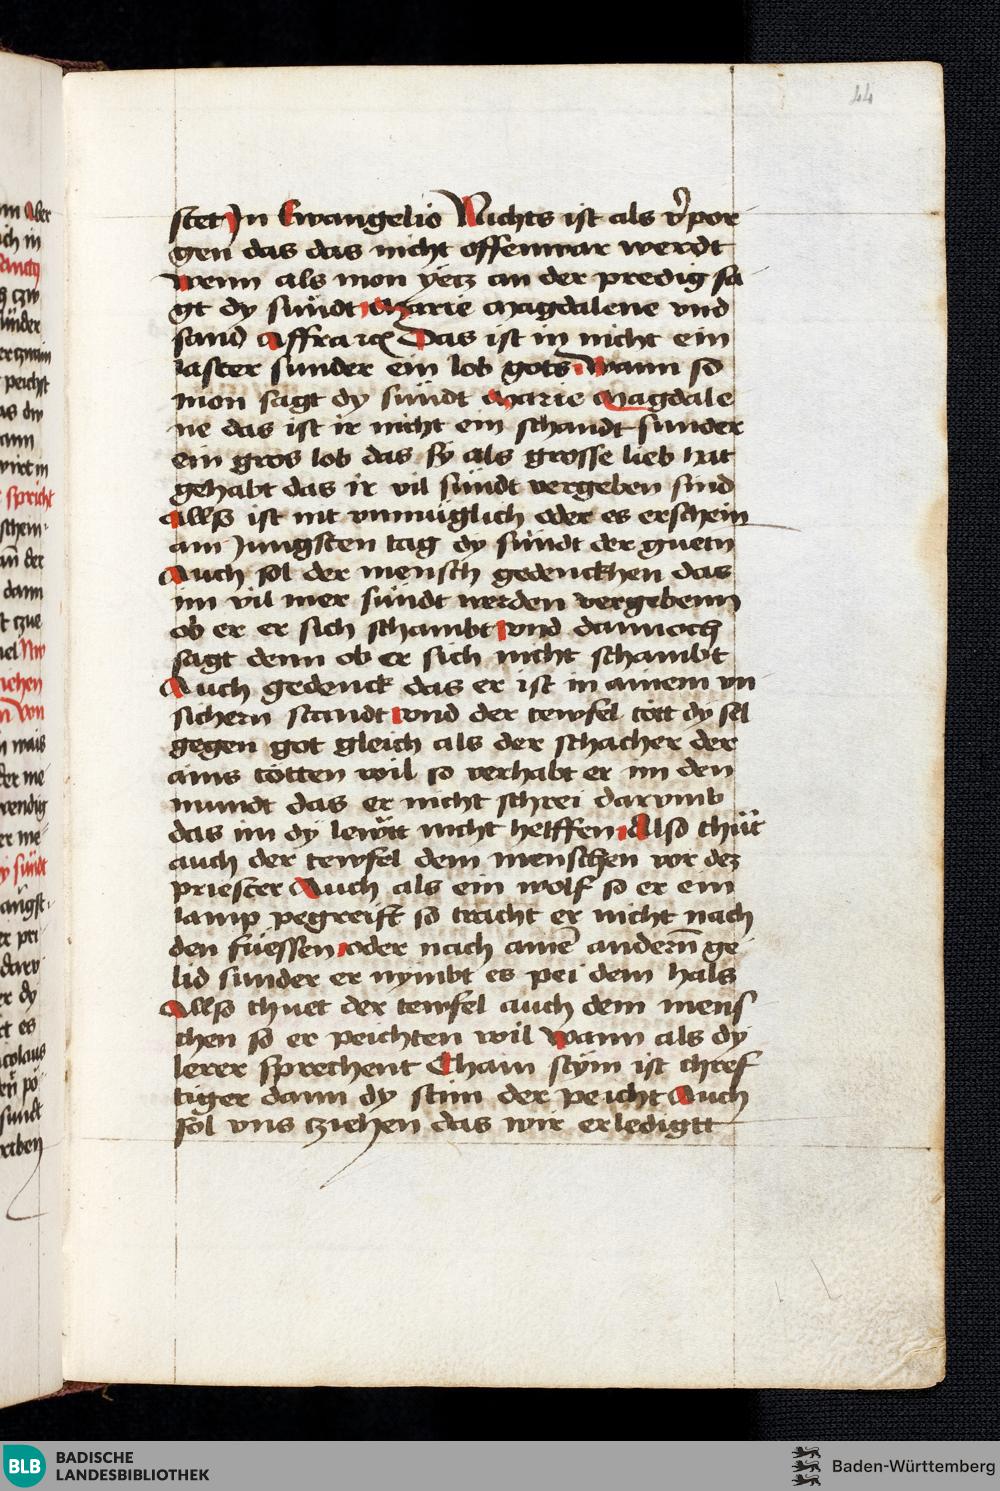 44
stet Jn Ewangelio Nichts ist als v̉por
gen das das nicht offennwar werdt
wenn als mon yetz an der predig sa
gt dy sündt Marie Magdalene vnd
sand Affra rc Das ist in nicht ein
laster sunder ein lob gots wann so
mon sagt dy sündt Marie Magdale
ne das ist ir nicht ein schandt sunder
ein gros lob das sy als grosse lieb hat
gehabt das ir vil sündt vergeben sind
Allß ist nit vnmüglich oder es erschein
am Jungsten tag dy sündt der guetn
Auch sol der mensch gedenckhen das
im vil mer sündt werden vergebenn
ob er er sich schambt vnd dannoch
sagt denn ob er sich nicht schambt
Auch gedenck das er ist in ainem vn
sichern standt vnd der tewfel tött dy sel
gegen got gleich als der schacher der
ains tötten wil so verhabt er im den
mundt das er nicht schrei darvmb
das im dy lewtt nicht helffen Also thůt
auch der tewfel dem menschen vor dez
priester Auch als ein wolf so er ein
lamp pegreift so tracht er nicht nach
den füessen oder nach ainē andern̄ ge
lid sunder er nymbt es pei dem hals
Allß thuet der tewfel auch dem mens
chen so er peichten wil wann als dy
lerer sprechent Chain stym ist chref
tiger dann dy stim der peicht Auch
sol vns cziehen das wir erledigtt
BLB BADISCHE
LANDESBIBLIOTHEK
Baden-Württemberg